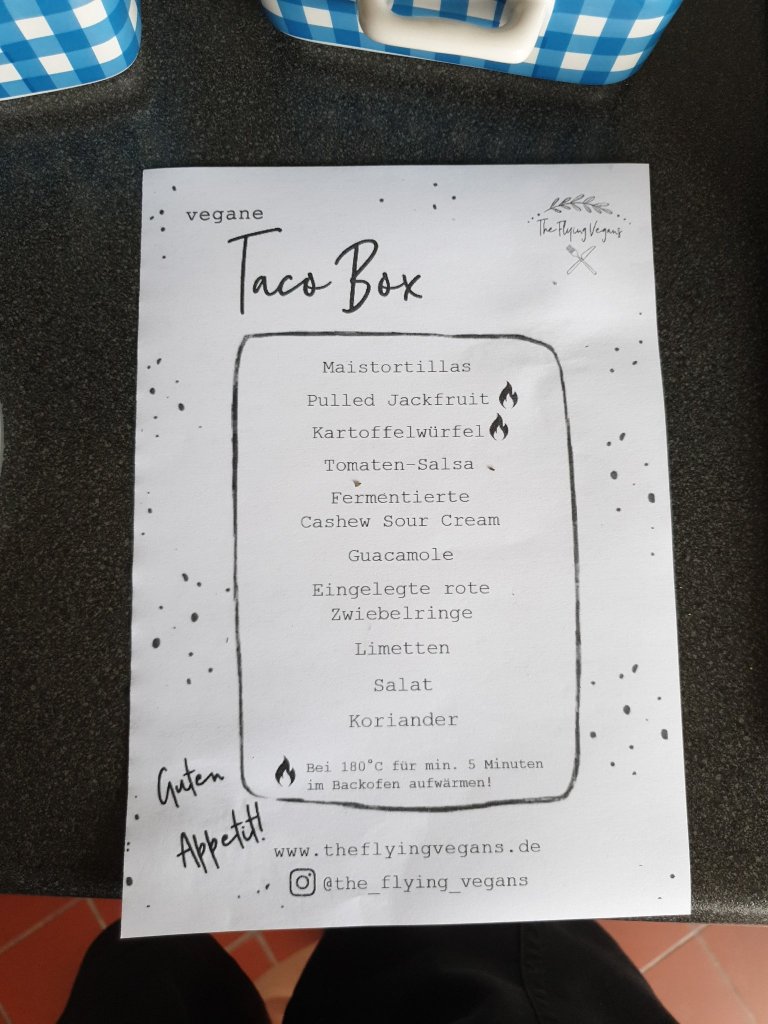 vegane
The Flying Vegans
Taco Box
Maistortillas
Pulled Jackfruit
Kartoffelwürfel
Tomaten-Salsa
Fermentierte
Cashew Sour Cream
Guacamole
Eingelegte rote
Zwiebelringe
Limetten
Salat
Koriander
Bei 180°C für min. 5 Minuten
im Backofen aufwärmen!
Guten
Appetit!
www.theflyingvegans.de
@the_flying_vegans